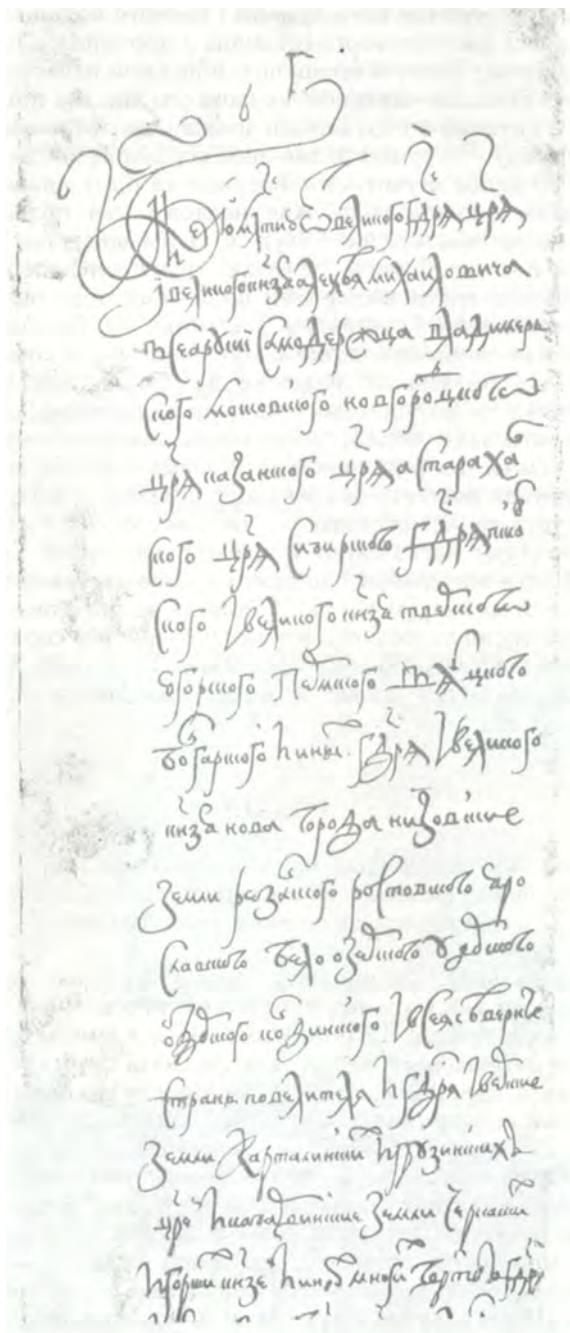 Б
млстию ѿ великого гдря цря
і великого кнзя алеѯѣя михаиловича
всеа русиі самодержца владимеръ
ского московского новгородцкого
цря казанского цря астараха
ского цря сибирского гдря пско
ского і великого кнзя тверского
югорского пермского вятцкого
болгарского и иных гдря і великого
кнзя нова города низовские
земли резанского ростовского яро
славского бело озерского удорского
обдорского кондинского і всеа северные
страны повелителя и гдря іверские
земли карталинских и грузинских
црей и кабардинские земли черкаских
и горских кнзей и иных многих